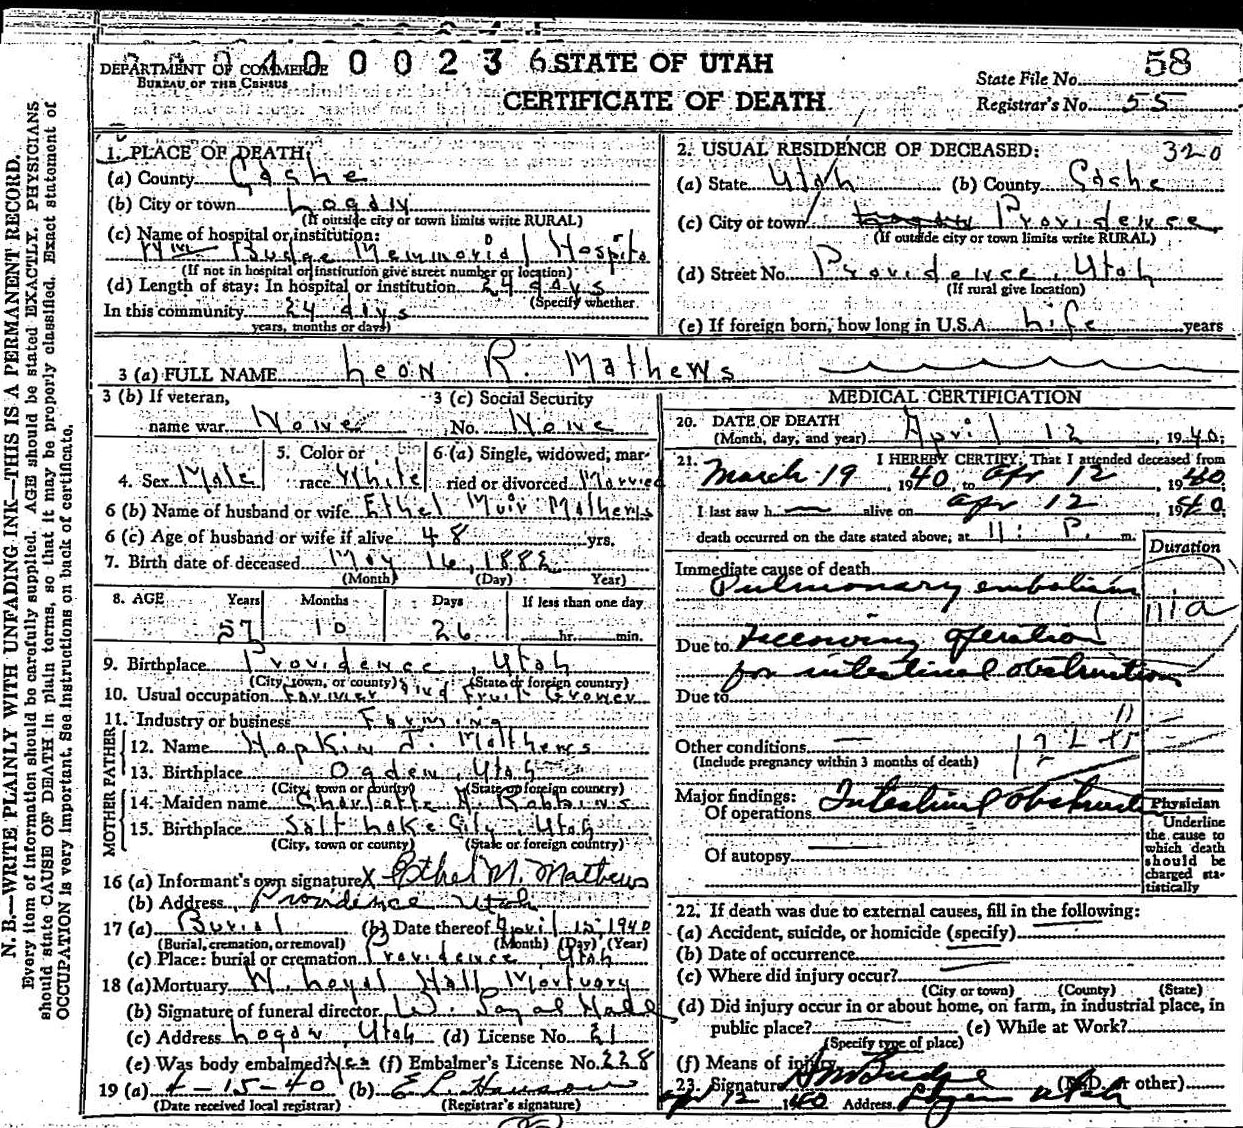 3 0 0 4 0 0 0 2 3 6
STATE OF UTAH
CERTIFICATE OF DEATH
DEPARTMENT OF COMMERCE
BUREAU OF THE CENSUS
State File No. 58
Registrar's No. 55
N. B.—WRITE PLAINLY WITH UNFADING INK—THIS IS A PERMANENT RECORD.
Every item of information should be carefully supplied. AGE should be stated EXACTLY. PHYSICIANS
should state CAUSE OF DEATH in plain terms, so that it may be properly classified. Exact statement of
OCCUPATION is very important. See instructions on back of certificate.
1. PLACE OF DEATH:
(a) County Cache
(b) City or town Logan
(If outside city or town limits write RURAL)
(c) Name of hospital or institution:
Wm Budge Memmorial Hospita
(If not in hospital or institution give street number or location)
(d) Length of stay: In hospital or institution 24 days
(Specify whether
In this community 24 days
years, months or days)
2. USUAL RESIDENCE OF DECEASED: 320
(a) State Utah (b) County Cache
(c) City or town Logan Providence
(If outside city or town limits write RURAL)
(d) Street No. Providence, Utah
(If rural give location)
(e) If foreign born, how long in U.S.A. Life years
3 (a) FULL NAME Leon R. Mathews
3 (b) If veteran,
name war None
3 (c) Social Security
No. None
4. Sex Male
5. Color or
race White
6 (a) Single, widowed, mar-
ried or divorced Married
6 (b) Name of husband or wife Ethel Muir Mathews
6 (c) Age of husband or wife if alive 48 yrs.
7. Birth date of deceased May 16, 1882
(Month) (Day) Year)
8. AGE Years Months Days If less than one day
57 10 26 hr. min.
9. Birthplace Providence, Utah
(City, town, or county) (State or foreign country)
10. Usual occupation Farmer and Fruit Grower
11. Industry or business Farming
FATHER
12. Name Hopkin J. Mathews
13. Birthplace Ogden, Utah
(City, town or county) (State or foreign country)
MOTHER
14. Maiden name Charlotte A. Robbins
15. Birthplace Salt Lake City, Utah
(City, town or county) (State or foreign country)
16 (a) Informant's own signature X Ethel M. Mathews
(b) Address Providence Utah
17 (a) Burial (b) Date thereof April 15, 1940
(Burial, cremation, or removal) (Month) (Day) (Year)
(c) Place: burial or cremation Providence, Utah
18 (a) Mortuary W. Loyal Hall Mortuary
(b) Signature of funeral director W. Loyal Hall
(c) Address Logan, Utah (d) License No. 21
(e) Was body embalmed? Yes (f) Embalmer's License No. 228
19 (a) 4-15-40 (b) E. L. Hansen
(Date received local registrar) (Registrar's signature)
MEDICAL CERTIFICATION
20. DATE OF DEATH
(Month, day, and year) April 12, 1940
21. I HEREBY CERTIFY, That I attended deceased from
March 19, 1940 to Apr 12, 1940
I last saw h alive on Apr 12 1940
death occurred on the date stated above, at 11: P. m.
Duration
Immediate cause of death
Pulmonary embolism
111a
Due to Following operation
for intestinal obstruction
Due to
Other conditions
(Include pregnancy within 3 months of death)
Major findings:
Of operations Intestinal obstruct
Of autopsy
Physician
Underline
the cause to
which death
should be
charged sta-
tistically
22. If death was due to external causes, fill in the following:
(a) Accident, suicide, or homicide (specify)
(b) Date of occurrence
(c) Where did injury occur?
(City or town) (County) (State)
(d) Did injury occur in or about home, on farm, in industrial place, in
public place? (e) While at Work?
(Specify type of place)
(f) Means of injury
23. Signature S M Budge (M.D. or other)
Apr 12 1940 Address Logan Utah